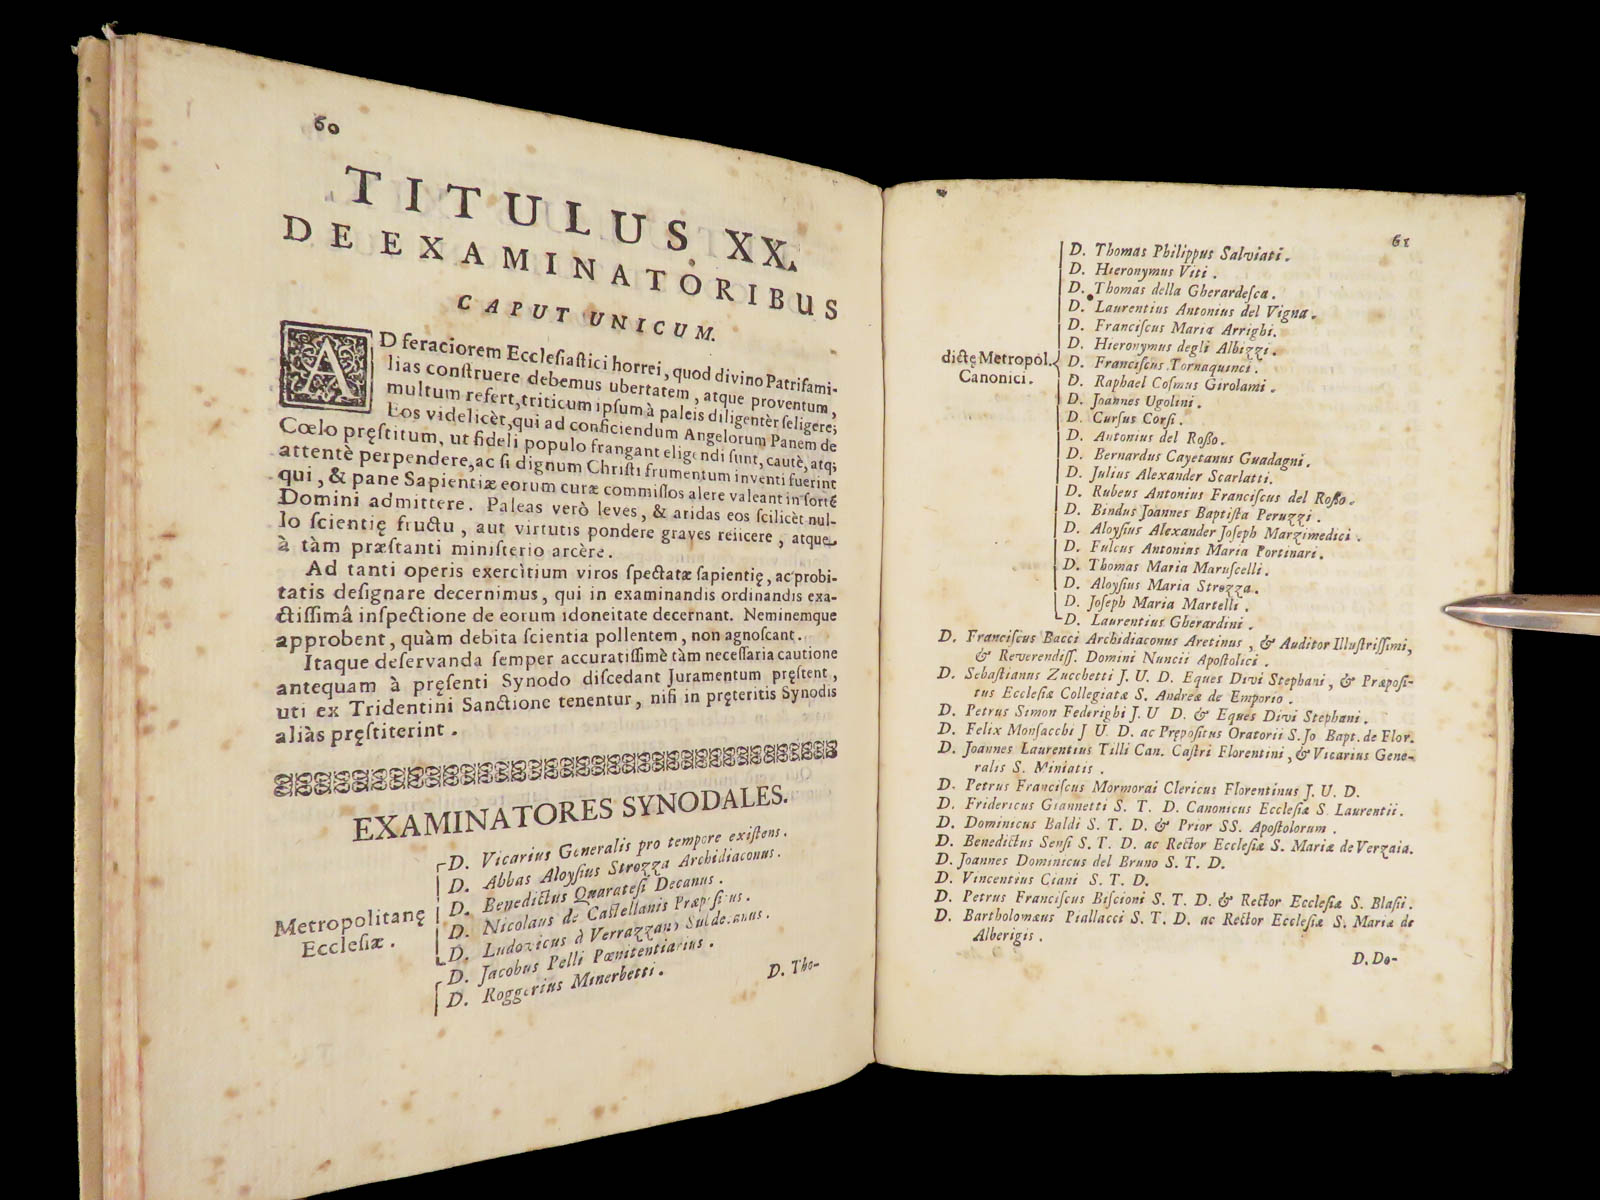 60
TITULUS XX.
DE EXAMINATORIBUS
CAPUT UNICUM.
AD feraciorem Ecclesiastici horrei, quod divino Patrifami-
lias construere debemus ubertatem, atque proventum,
multum refert, triticum ipsum à paleis diligentèr seligere;
Eos videlicèt, qui ad conficiendum Angelorum Panem de
Cœlo pręstitum, ut fideli populo frangant eligendi sunt, cautè, atq;
attentè perpendere, ac si dignum Christi frumentum inventi fuerint
qui, & pane Sapientiæ eorum curæ commissos alere valeant in sortẽ
Domini admittere. Paleas verò leves, & aridas eos scilicèt nul-
lo scientię fructu, aut virtutis pondere graves reiicere, atque
à tàm præstanti ministerio arcère.
Ad tanti operis exercìtium viros spectatæ sapientię, ac probi-
tatis designare decernimus, qui in examinandis ordinandis exa-
ctissimâ inspectione de eorum idoneitate decernant. Neminemque
approbent, quàm debita scientia pollentem, non agnoscant.
Itaque deservanda semper accuratissimè tàm necessaria cautione
antequam à pręsenti Synodo discedant Juramentum pręstent,
uti ex Tridentini Sanctione tenentur, nisi in pręteritis Synodis
aliàs pręstiterint.
EXAMINATORES SYNODALES.
Metropolitanę
Ecclesiæ.
D. Vicarius Generalis pro tempore existens.
D. Abbas Aloysius Strozza Archidiaconus.
D. Benedictus Quaratesi Decanus.
D. Nicolaus de Castellanis Præpositus.
D. Ludovicus à Verrazzano Subdecanus.
D. Jacobus Pelli Pœnitentiarius.
D. Roggerius Minerbetti.
D. Tho-
61
dictę Metropol.
Canonici.
D. Thomas Philippus Salviati.
D. Hieronymus Viti.
D. Thomas della Gherardesca.
D. Laurentius Antonius del Vigna.
D. Franciscus Maria Arrighi.
D. Hieronymus degli Albizzi.
D. Franciscus Tornaquinci.
D. Raphael Cosmus Girolami.
D. Joannes Ugolini.
D. Cursus Corsi.
D. Antonius del Rosso.
D. Bernardus Cayetanus Guadagni.
D. Julius Alexander Scarlatti.
D. Rubeus Antonius Franciscus del Rosso.
D. Bindus Joannes Baptista Peruzzi.
D. Aloysius Alexander Joseph Marzimedici.
D. Fulcus Antonius Maria Portinari.
D. Thomas Maria Maruscelli.
D. Aloysius Maria Strozza.
D. Joseph Maria Martelli.
D. Laurentius Gherardini.
D. Franciscus Bacci Archidiaconus Aretinus, & Auditor Illustrissimi,
& Reverendiss. Domini Nuncii Apostolici.
D. Sebastianus Zucchetti J. U. D. Eques Divi Stephani, & Præposi-
tus Ecclesiæ Collegiatæ S. Andreæ de Emporio.
D. Petrus Simon Federighi J. U D. & Eques Divi Stephani.
D. Felix Monsacchi J U D. ac Prępositus Oratorii S. Jo Bapt. de Flor.
D. Joannes Laurentius Tilli Can. Castri Florentini, & Vicarius Gene-
ralis S. Miniatis.
D. Petrus Franciscus Mormorai Clericus Florentinus J. U. D.
D. Fridericus Giannetti S. T. D. Canonicus Ecclesiæ S. Laurentii.
D. Dominicus Baldi S. T. D. & Prior SS. Apostolorum.
D. Benedictus Sensi S. T. D. ac Rector Ecclesiæ S. Mariæ de Verzaia.
D. Joannes Dominicus del Bruno S. T. D.
D. Vincentius Ciani S. T. D.
D. Petrus Franciscus Biscioni S. T. D. & Rector Ecclesiæ S. Blasii.
D. Bartholomæus Piallacci S. T. D. ac Rector Ecclesiæ S. Mariæ de
Alberigis.
D. Do-